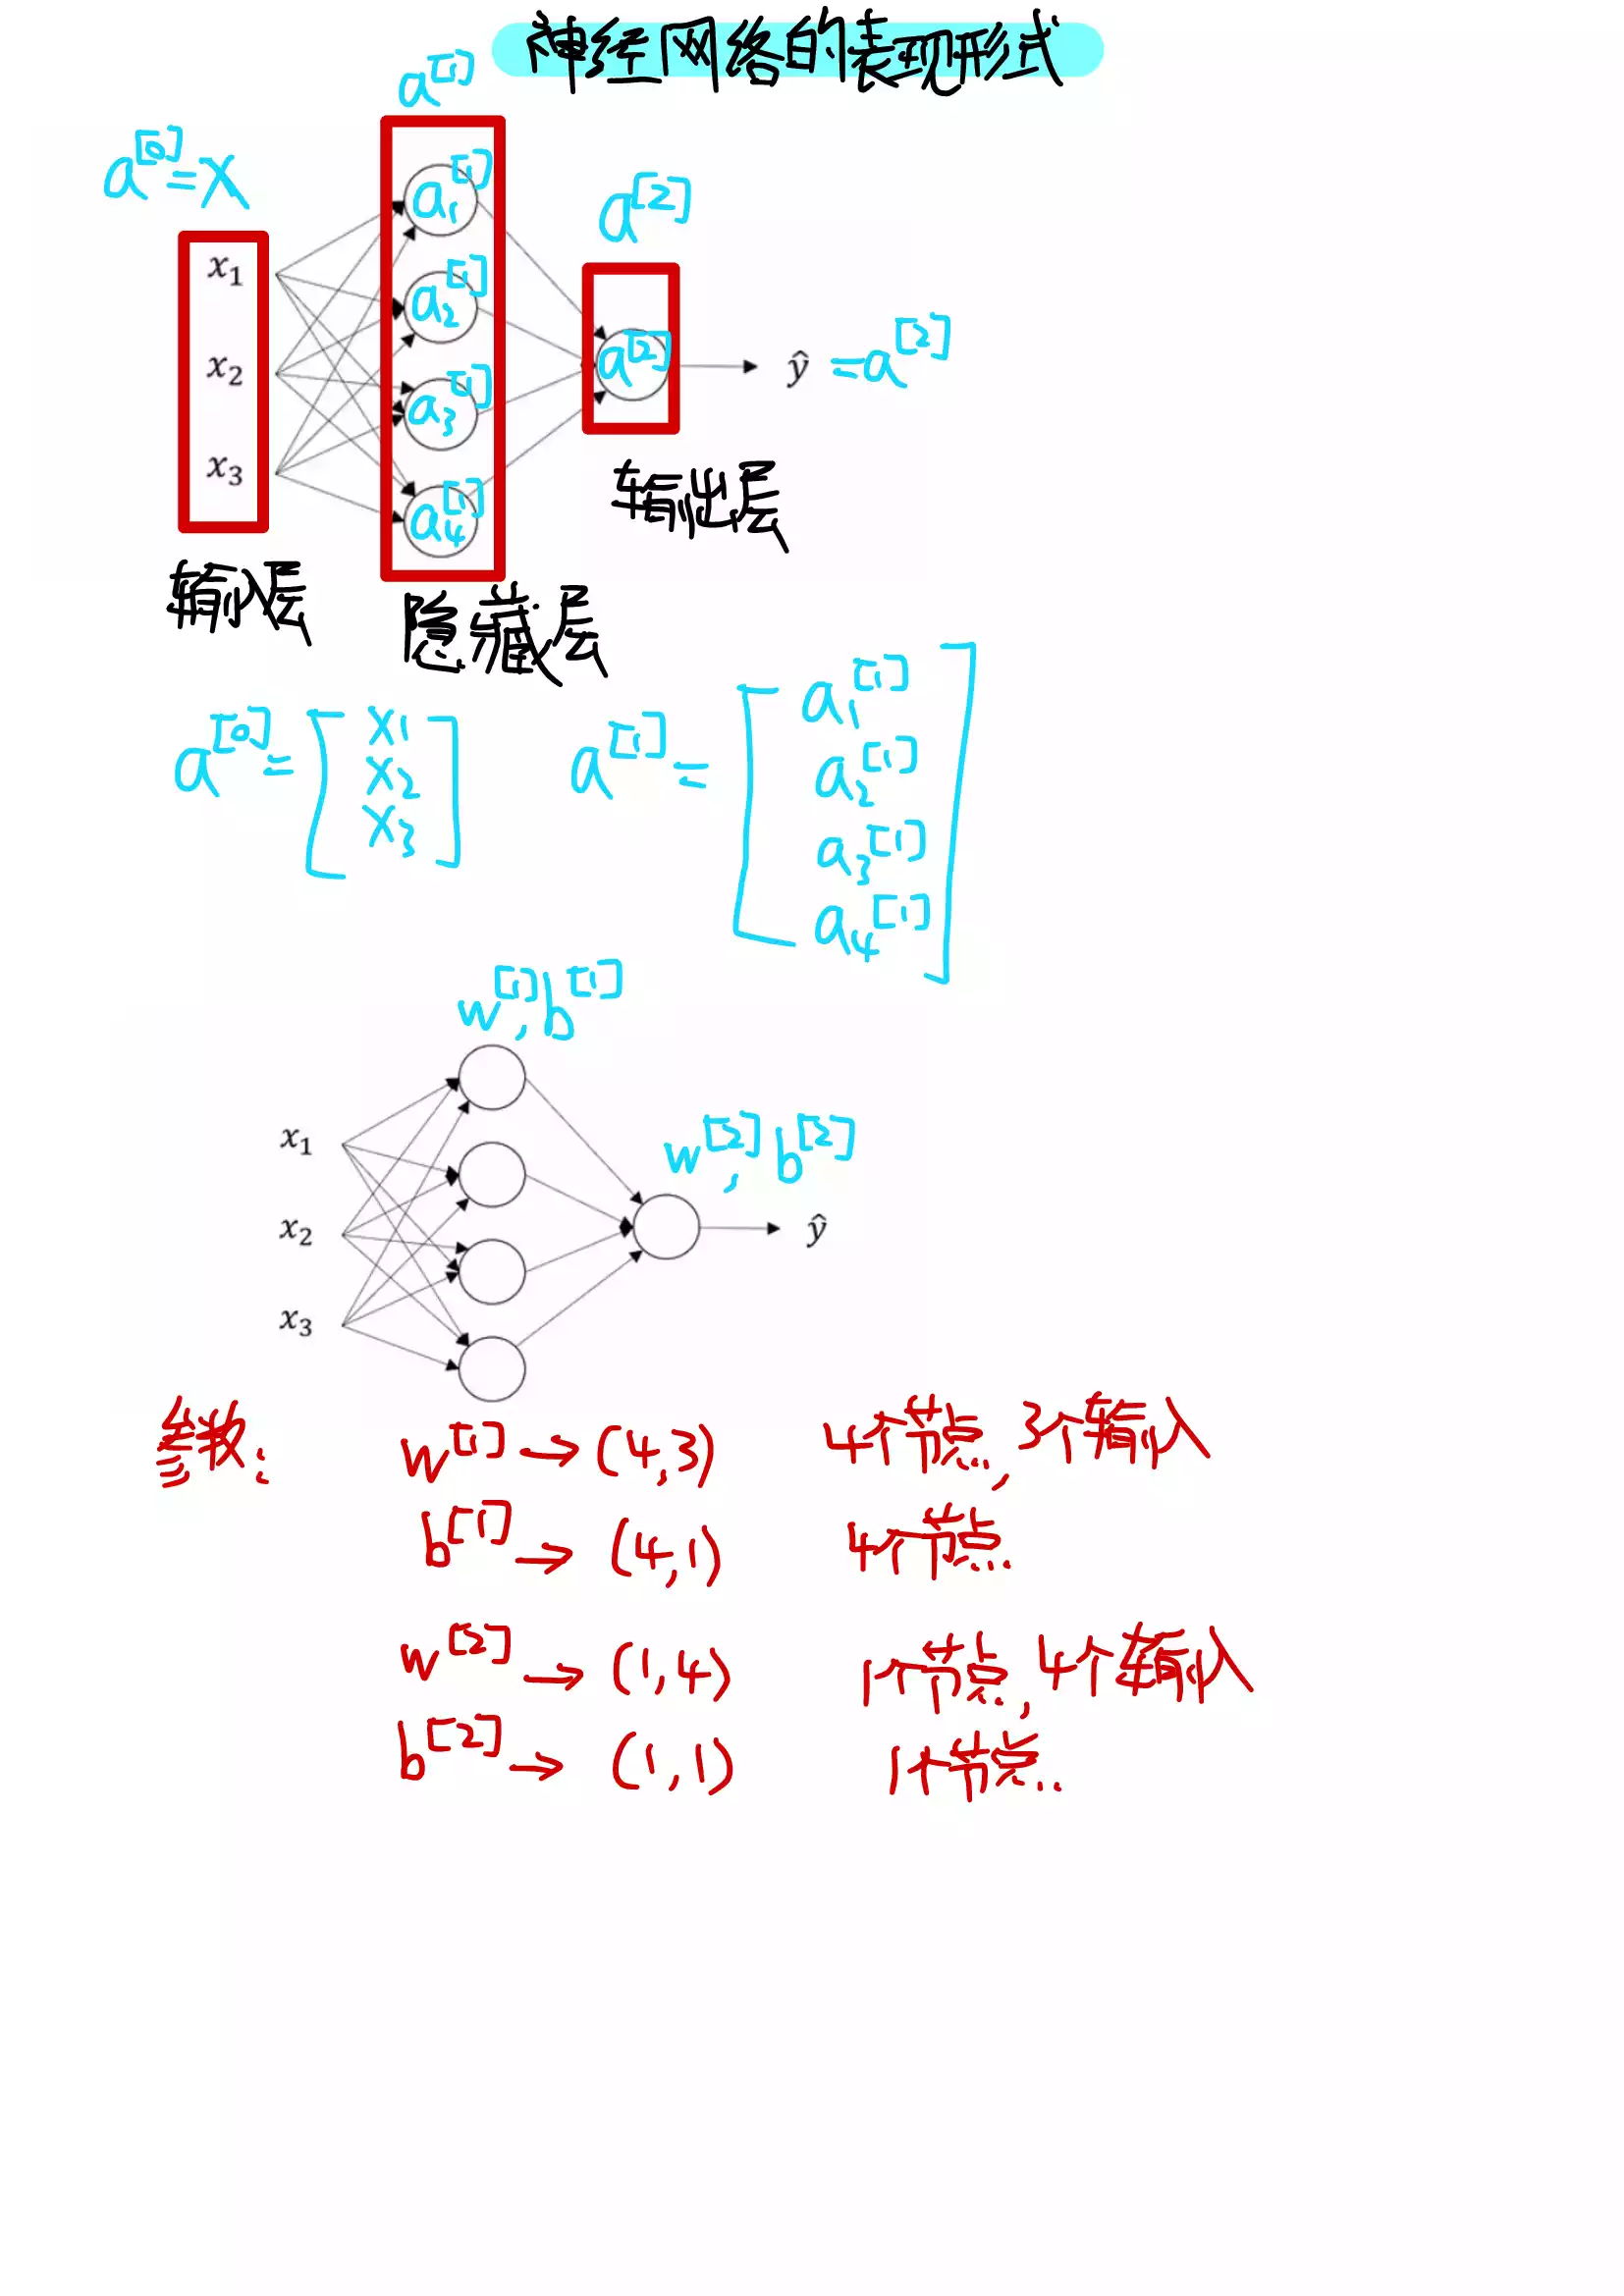 神经网络的表现形式
a^[1]
a^[0]=X
a_1^[1]
a^[2]
x_1
a_2^[1]
x_2
a^[2]
ŷ =a^[2]
a_3^[1]
x_3
a_4^[1]
输出层
输入层
隐藏层
a^[0]= [x_1 x_2 x_3]
a^[1]= [a_1^[1] a_2^[1] a_3^[1] a_4^[1]]
w^[1], b^[1]
x_1
w^[2], b^[2]
x_2
ŷ
x_3
参数: w^[1] → (4,3) 4个节点, 3个输入
b^[1] → (4,1) 4个节点.
w^[2] → (1,4) 1个节点, 4个输入
b^[2] → (1,1) 1个节点..